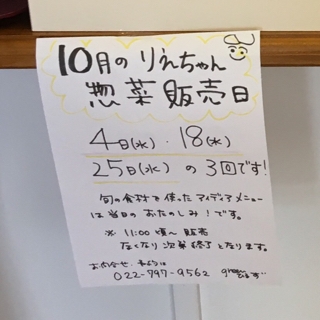 10月の りえちゃん
惣菜販売日
4日(水)・18(水)
25日(水)の3回です!
旬の食材を使ったアイディアメニュー
は当日のおたのしみ!です。
※ 11:00頃〜 販売
なくなり次第終了となります。
お問合せ
022-797-9562